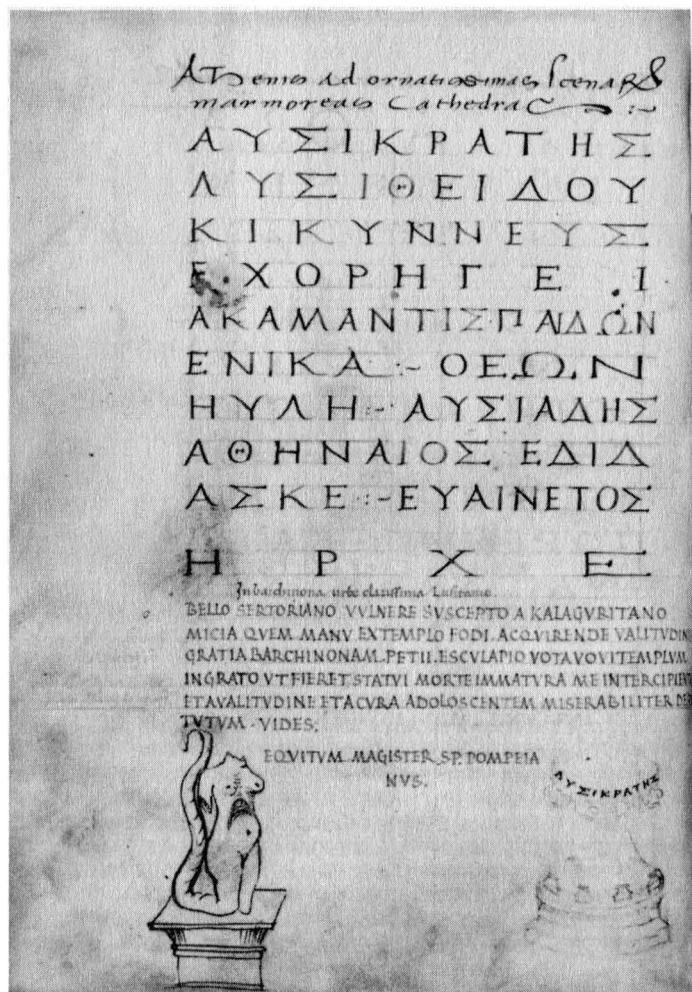 AThenis ad ornatissimas Scenas &
marmoreas Cathedras :~
ΑΥΣΙΚΡΑΤΗΣ
ΛΥΣΙΘΕΙΔΟΥ
ΚΙΚΥΝΝΕΥΣ
ΕΧΟΡΗΓΕΙ
ΑΚΑΜΑΝΤΙΣ·ΠΑΙΔΩΝ
ΕΝΙΚΑ :~ ΟΕΩΝ
ΗΥΛΗ :~ ΑΥΣΙΑΔΗΣ
ΑΘΗΝΑΙΟΣ ΕΔΙΔ
ΑΣΚΕ :~ ΕΥΑΙΝΕΤΟΣ
ΗΡΧΕ
In barchinona urbe clarissima Lusitanie.
BELLO SERTORIANO VVLNERE SVSCEPTO A KALAGVRITANO
MICIA QVEM MANV EXTEMPLO FODI. ACQVIRENDE VALITVDIN
GRATIA BARCHINONAM. PETII. ESCVLAPIO VOTA VOVI TEMPLVM
INGRATO VT FIERET STATVI MORTE IMMATVRA ME INTERCIPIENT
ET A VALITVDINE ET A CVRA ADOLOSCENTEM MISERABILITER DES
TVTVM · VIDES.
EQVITVM MAGISTER SP. POMPEIA
NVS.
ΛΥΣΙΚΡΑΤΗΣ